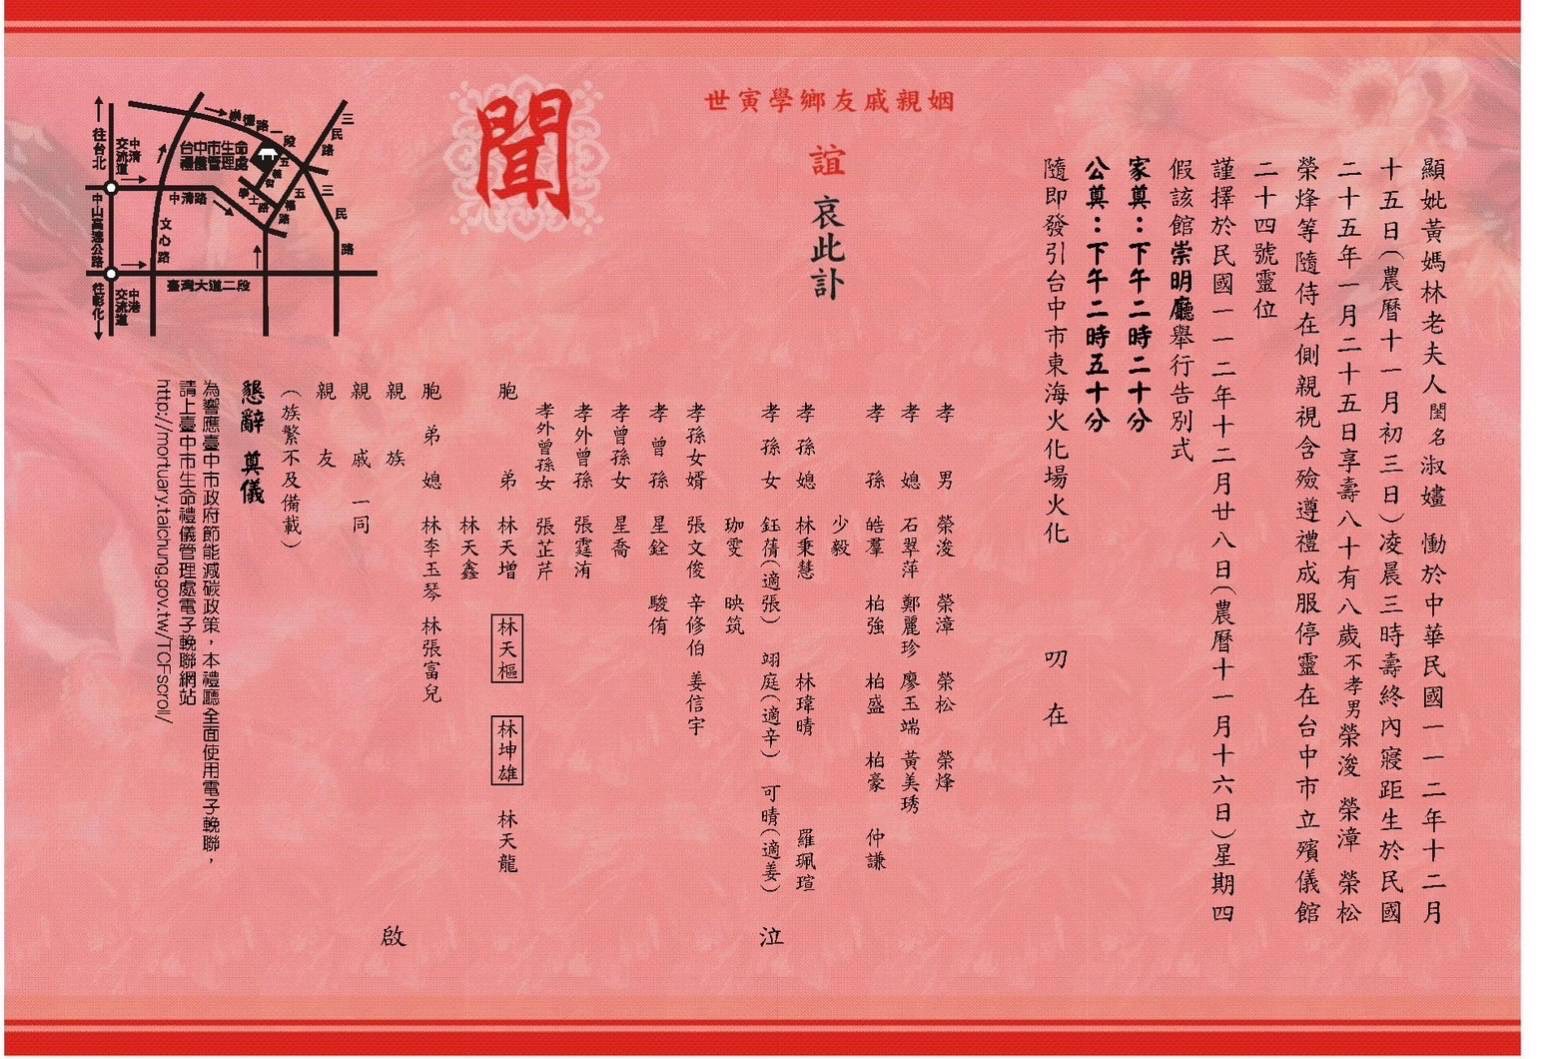 顯妣黃媽林老夫人閨名淑嬧　慟於中華民國一一二年十二月
十五日(農曆十一月初三日)凌晨三時壽終內寢距生於民國
二十五年一月二十五日享壽八十有八歲不孝男榮浚　榮漳　榮松
榮烽等隨侍在側親視含殮遵禮成服停靈在台中市立殯儀館
二十四號靈位
謹擇於民國一一二年十二月廿八日(農曆十一月十六日)星期四
假該館崇明廳舉行告別式
家奠：下午二時二十分
公奠：下午二時五十分
隨即發引台中市東海火化場火化
叨在
姻親戚友鄉學寅世
誼　哀此訃
聞
孝男　榮浚　榮漳　榮松　榮烽
孝媳　石翠萍　鄭麗珍　廖玉端　黃美琇
孝孫　皓羣　柏強　柏盛　柏豪　仲謙
少毅
孝孫媳　林秉慧　林瑋晴　羅珮瑄
孝孫女　鈺蒨(適張)　翊庭(適辛)　可晴(適姜)
珈雯　映筑
孝孫女婿　張文俊　辛修伯　姜信宇
孝曾孫　星銓　駿侑
孝曾孫女　星喬
孝外曾孫　張霆洧
孝外曾孫女　張芷芹
泣
胞弟　林天增　林天樞　林坤雄　林天龍
林天鑫
胞弟媳　林李玉琴　林張富兒
親族
親戚一同
親友
啟
(族繁不及備載)
懇辭　奠儀
為響應臺中市政府節能減碳政策，本禮廳全面使用電子輓聯，
請上臺中市生命禮儀管理處電子輓聯網站
http://mortuary.taichung.gov.tw/TCFscroll/
往台北
中清交流道
中山高速公路
往彰化
中港交流道
中清路
文心路
臺灣大道二段
崇德路一段
台中市生命禮儀管理處
五義街
學士路
五權路
三民路
三民路